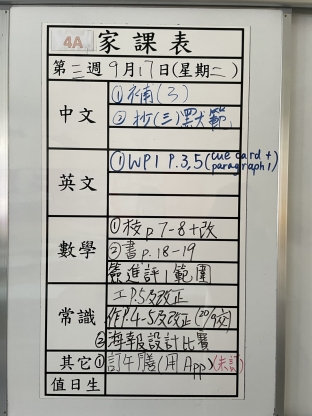 4A 家課表
第三週9月17日(星期二)
中文 ①補(三)
②抄(三)默範
英文 ①WP1 P.3,5(cue card + paragraph 1)
數學 ①校p7-8+改
②書p.18-19
簽進評1範圍
常識 工P.5及改正
作P.4-5及改正(20/9交)
②海報設計比賽
其它 ①訂午膳(用App)(未訂)
值日生